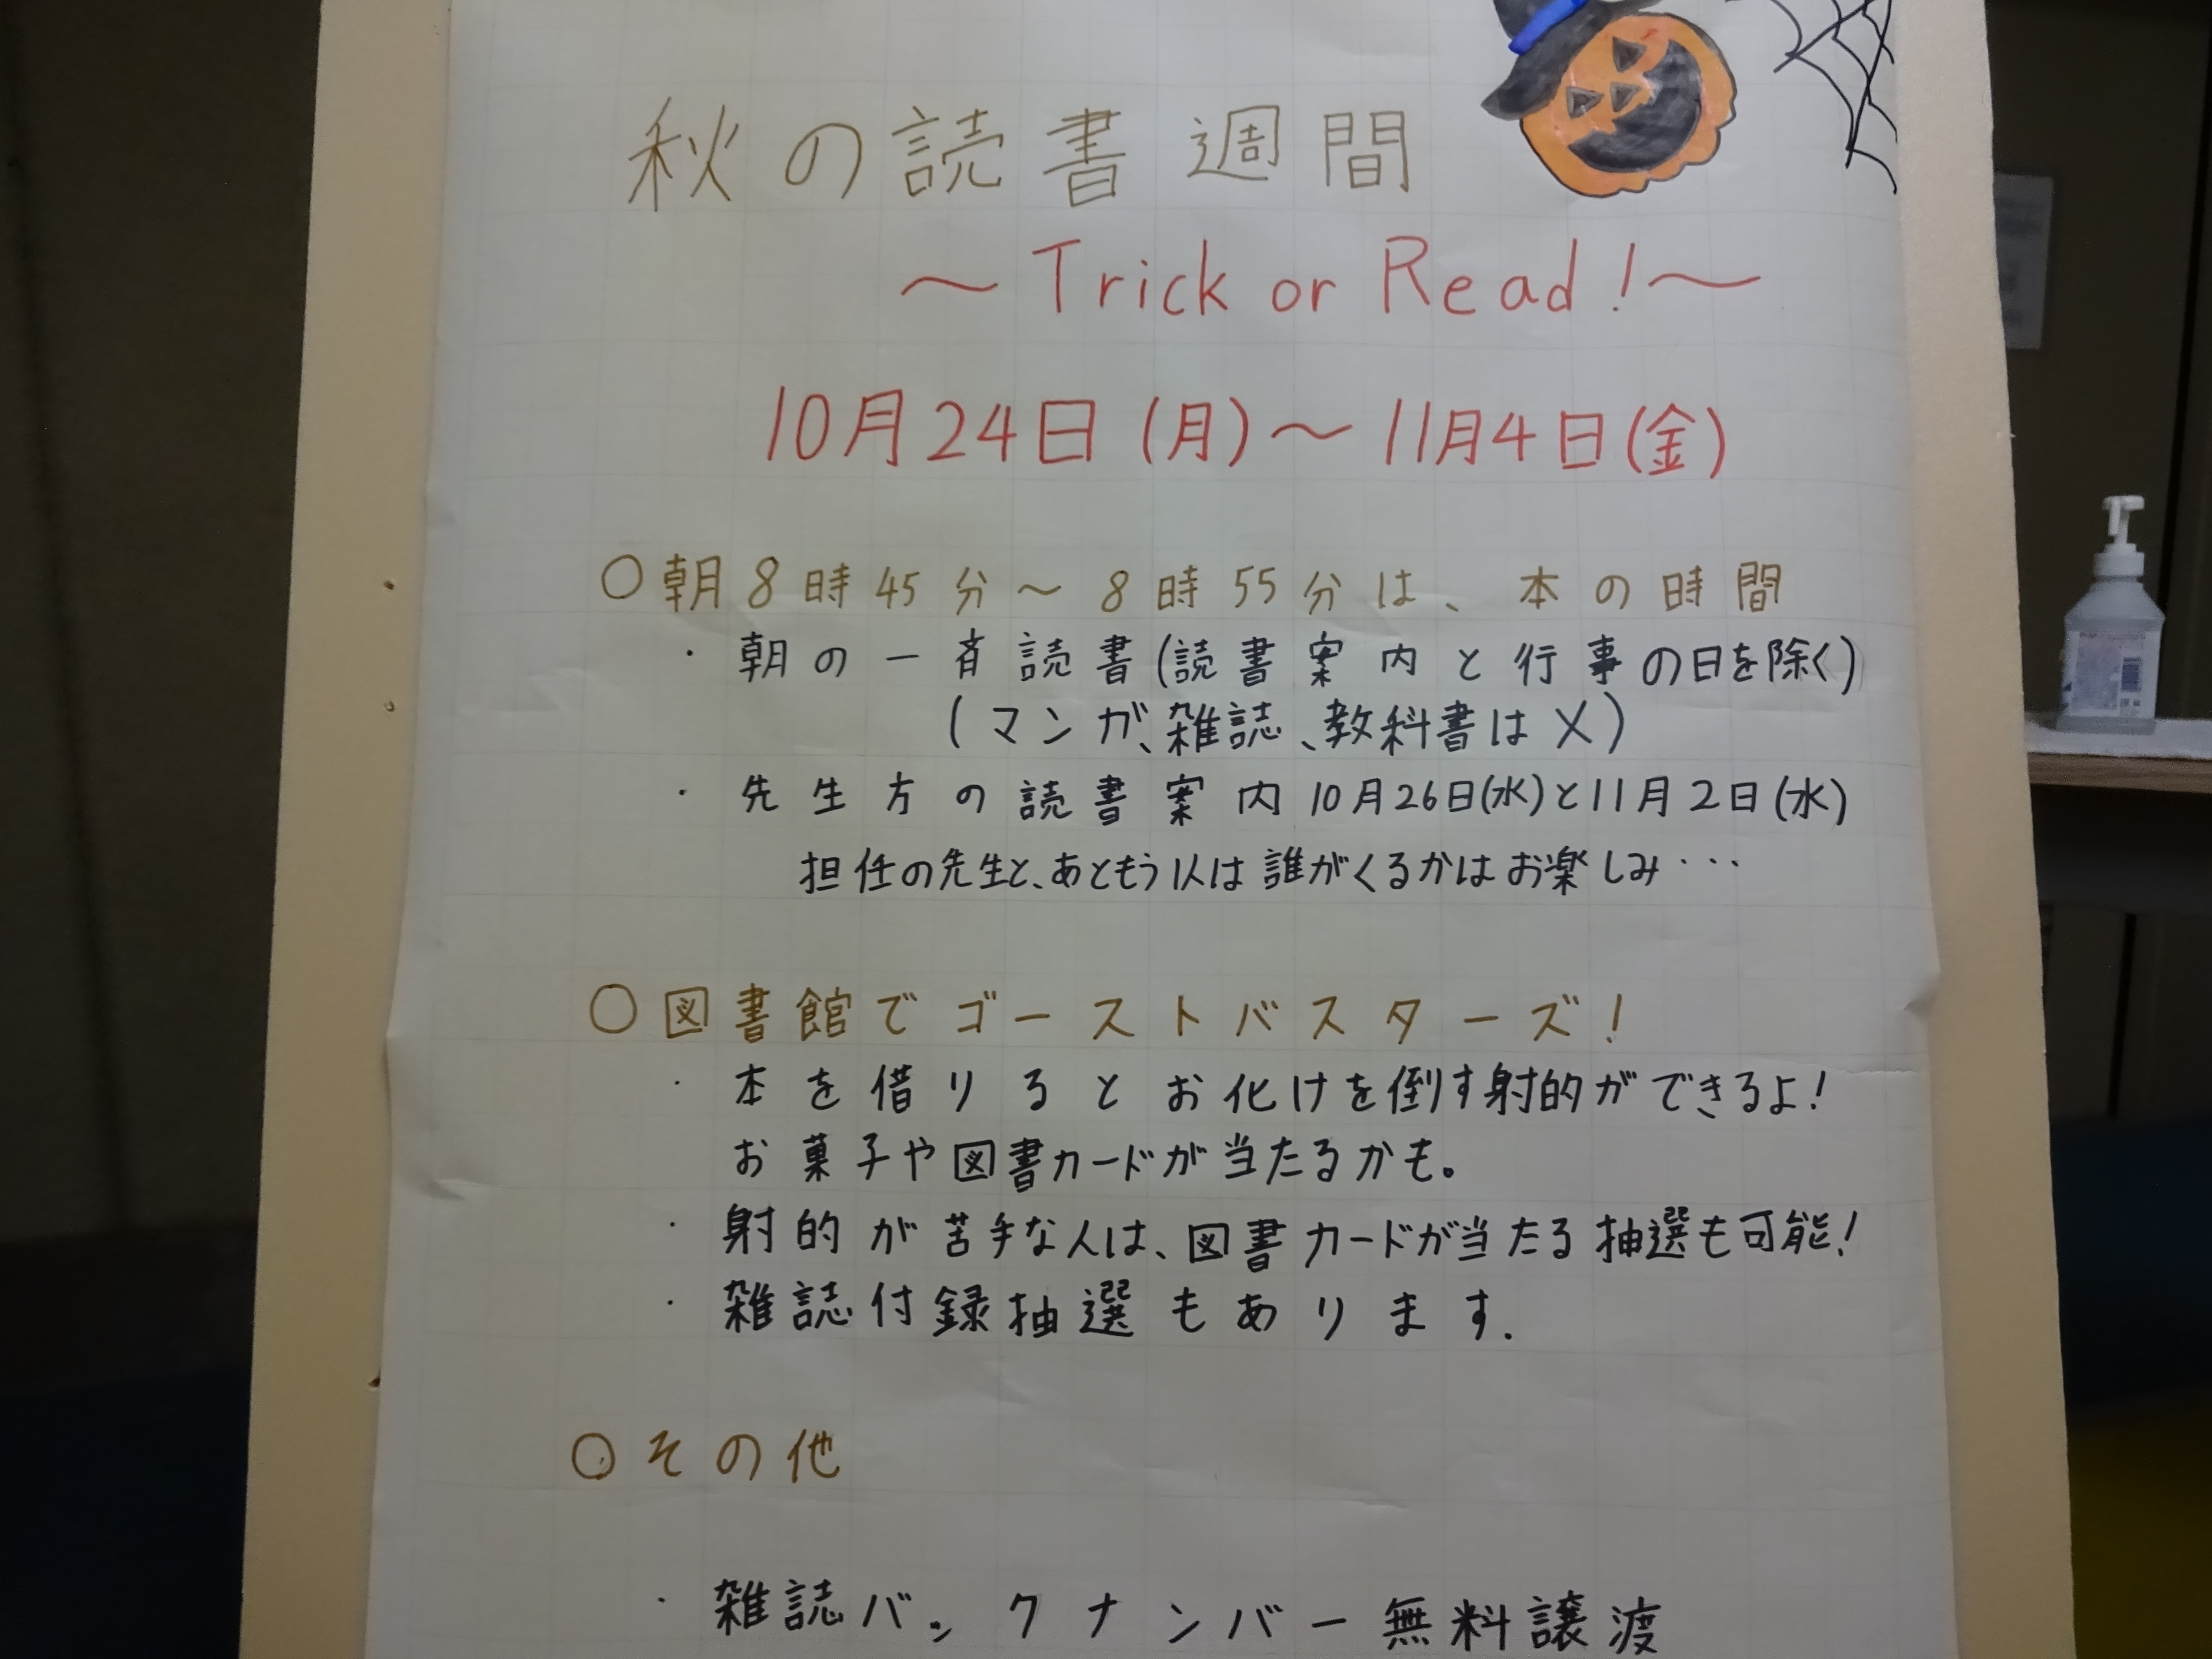 秋の読書週間
～Trick or Read!～
10月24日(月)～11月4日(金)
○朝8時45分～8時55分は、本の時間
・朝の一斉読書(読書案内と行事の日を除く)
(マンガ、雑誌、教科書は×)
・先生方の読書案内10月26日(水)と11月2日(水)
担任の先生と、あともう1人は誰がくるかはお楽しみ…
○図書館でゴーストバスターズ!
・本を借りるとお化けを倒す射的ができるよ!
お菓子や図書カードが当たるかも。
・射的が苦手な人は、図書カードが当たる抽選も可能!
・雑誌付録抽選もあります.
○その他
・雑誌バックナンバー無料譲渡